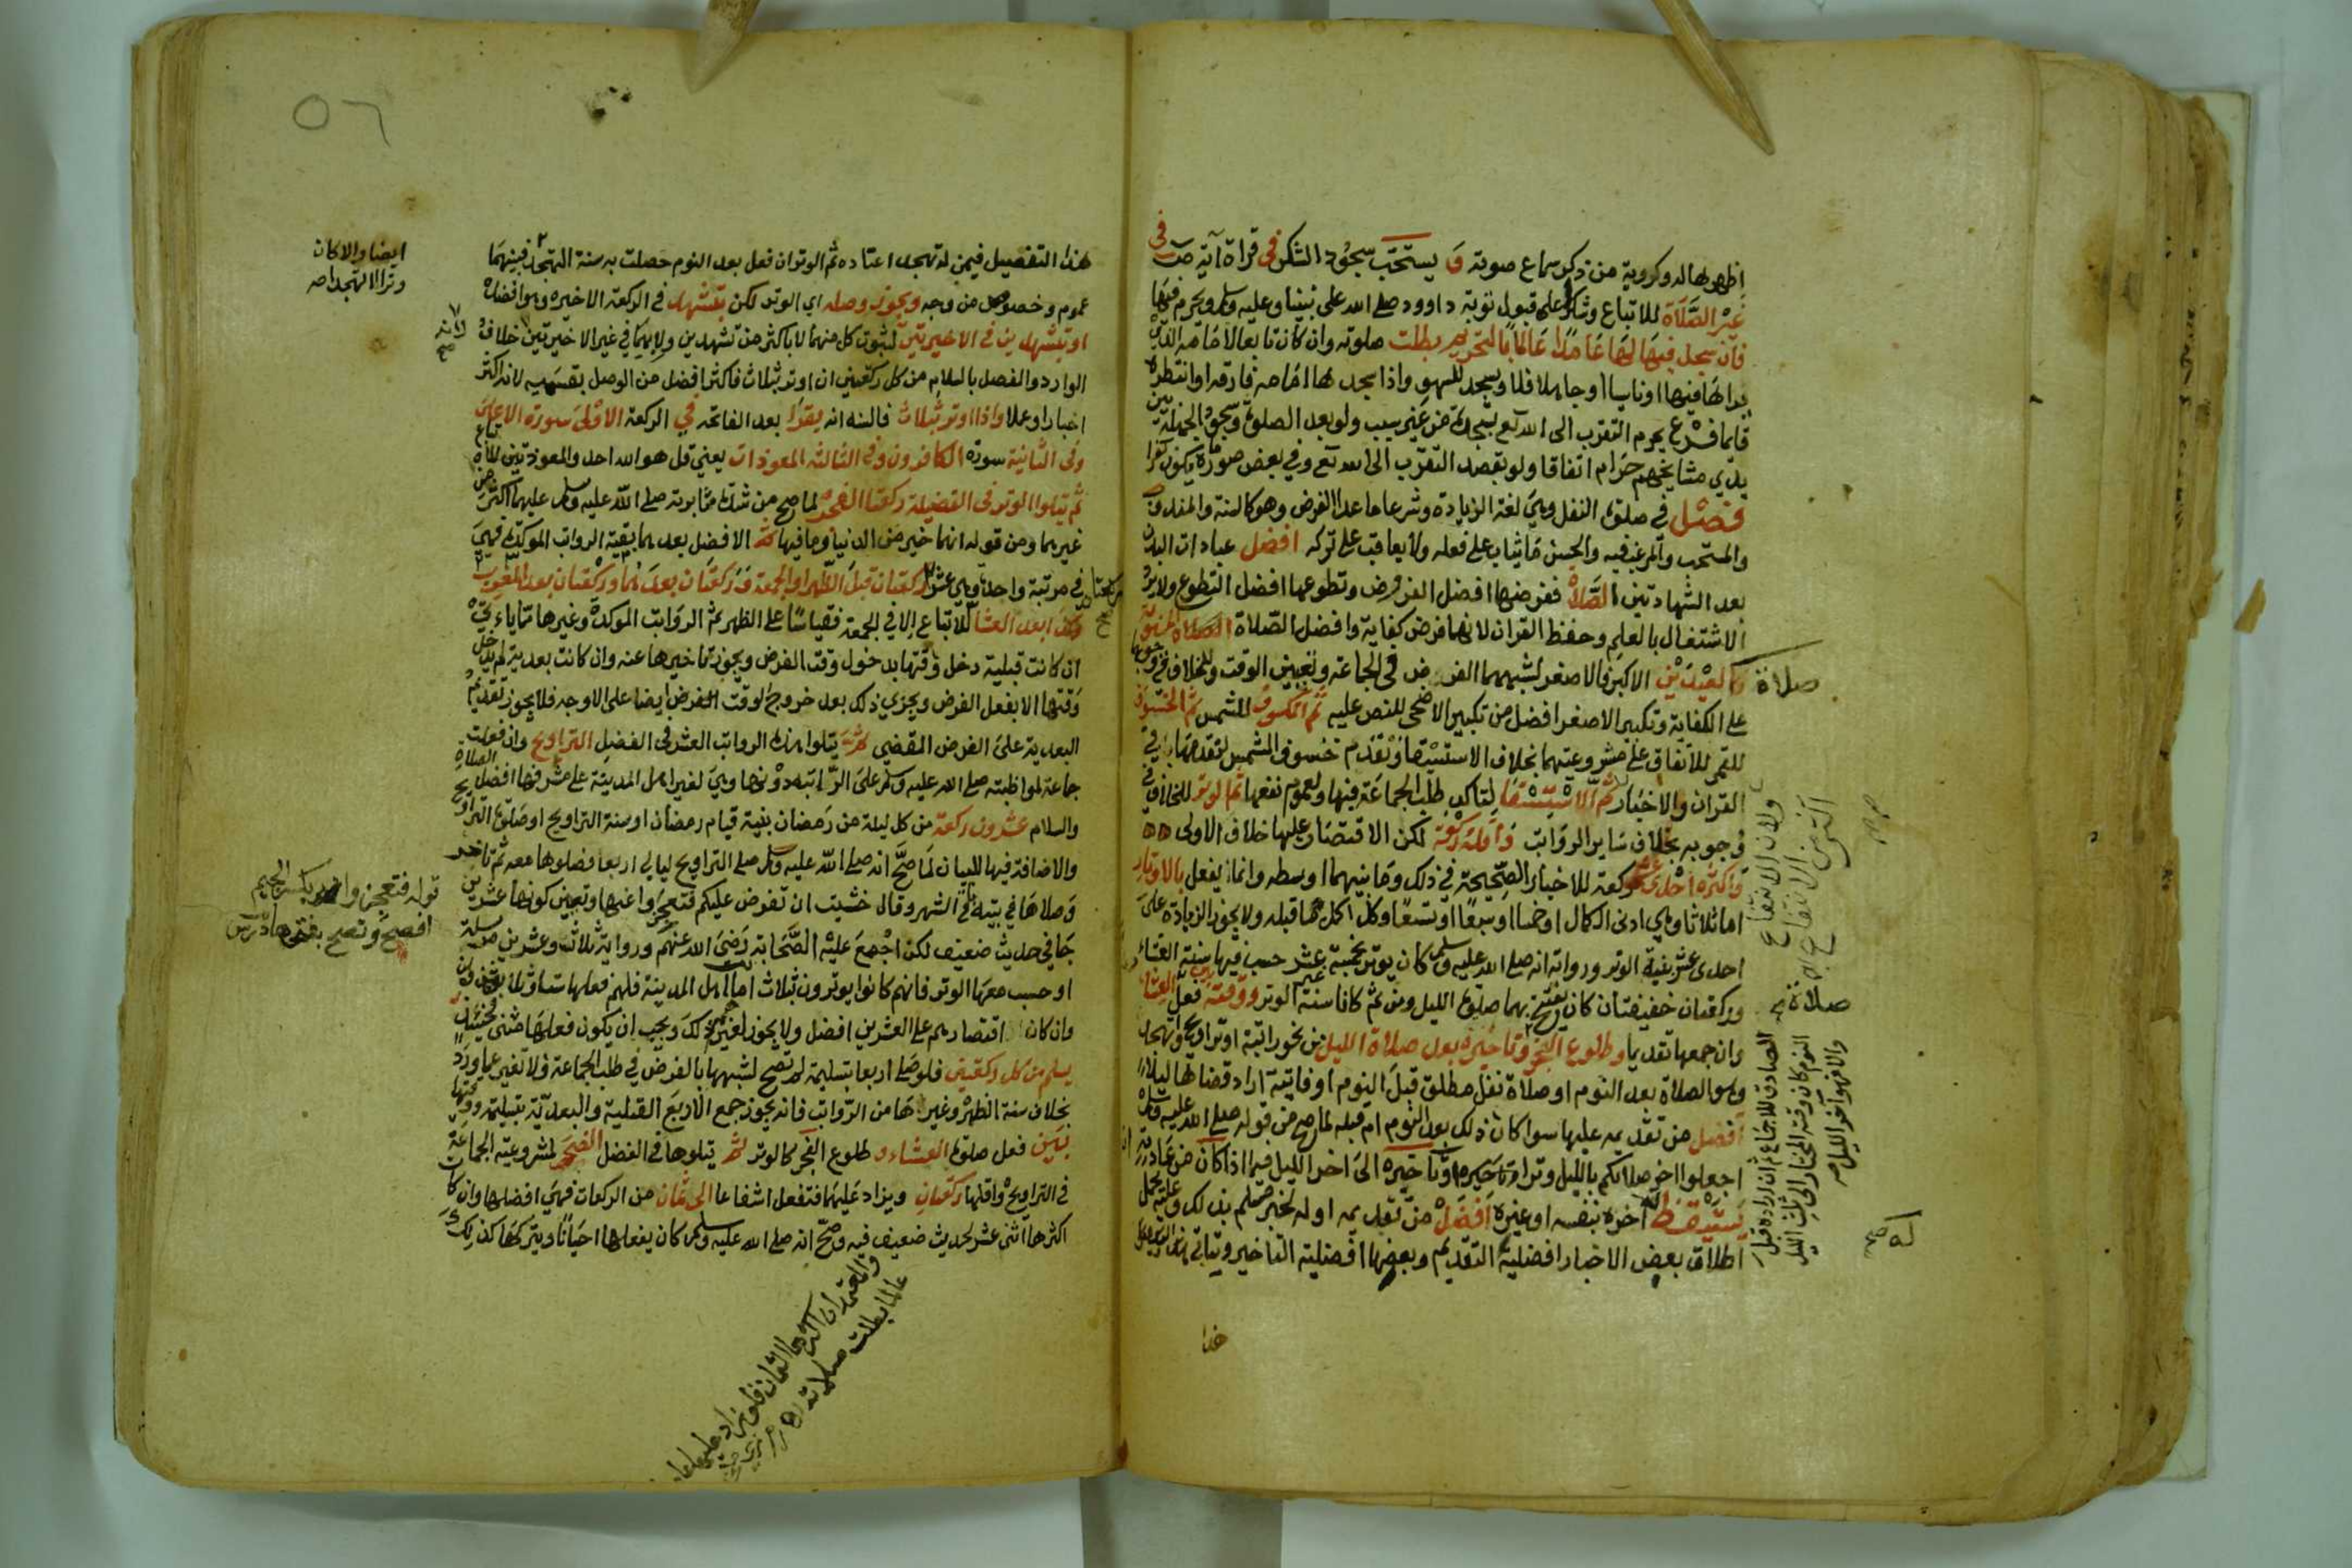 اظهرها له وكروية من ذكر سماع صوته و يستحب سجود الشكر في قراة آية ص في
غير الصلاة للاتباع وشكرا على قبول توبة داوود صلى الله على نبينا وعليه وسلم ويحرم فيها
فان سجد فيها لها عامدا عالما بالتحريم بطلت صلوته وان كان تابعا لامامه الذي
يراها فيها او ناسيا او جاهلا فلا ويسجد للسهو واذا سجد لها امامه فارقه او انتظره
قايما فرع يحرم التقرب الى الله تع بسجدة من غير سبب ولو بعد الصلوة وسجود الجهلة بين
يدي مشايخهم حرام اتفاقا ولو بقصد التقرب الى الله تع وفي بعض صوره ما يكون كفرا
فصل في صلوة النفل وهي لغة الزيادة وشرعا ما عدا الفرض وهو كالسنة والمندوب
والمستحب والمرغب فيه والحسن ما يثاب على فعله ولا يعاقب على تركه افضل عبادات البدن
بعد الشهادتين الصلاة ففرضها افضل الفروض وتطوعها افضل التطوع ولا يرد
الاشتغال بالعلم وحفظ القران لانهما فرض كفاية وافضل الصلاة الصلاة المسنونة
صلاة العيدين الاكبر فالاصغر لشبههما الفرض في الجماعة وتعيين الوقت وللخلاف في وجوبها
على الكفاية وتكبير الاصغر افضل من تكبير الاضحى للنص عليه ثم الكسوف للشمس ثم الخسوف
للقمر للاتفاق على مشروعيتهما بخلاف الاستسقا وتقدم خسوف الشمس لتقدمها في
القران والاخبار ثم الاستسقا لتاكد طلب الجماعة فيها ولعموم نفعها ثم الوتر للخلاف في
وجوبه بخلاف ساير الرواتب واقله ركعة لكن الاقتصار عليها خلاف الاولى
واكثره احدى عشر ركعة للاخبار الصحيحة في ذلك وما بينهما اوسطه وانما يفعل بالاوتار
اما ثلاثا وهي ادنى الكمال او خمسا او سبعا او تسعا وكل اكمل مما قبله ولا يجوز الزيادة على
احدى عشر بنية الوتر ورواية انه صلى الله عليه وسلم كان يوتر بخمسة عشر حسب فيها سنة العشاء
وركعتان خفيفتان كان يفتتح بهما صلوة الليل ومن ثم كانا سنة غير الوتر ووقته بين فعل العشاء
وان جمعها تقديما وطلوع الفجر وتاخيره بعد صلاة الليل من نحو راتبة او تراويح او تهجد
وهو الصلاة بعد النوم او صلاة نفل مطلق قبل النوم او فايتة اراد قضاها ليلا
افضل من تقديمه عليها سوا كان ذلك بعد النوم ام قبله لما صح من قوله صلى الله عليه وسلم
اجعلوا اخر صلاتكم بالليل وترا وتاخيره الى اخر الليل فيما اذا كان من عادته ان
يستيقظ له اخره بنفسه او غيره افضل من تقديمه اوله لخبر مسلم بذلك وعليه يحمل
اطلاق بعض الاخبار افضلية التقديم وبعضها افضلية التاخير ويتاتى
هذا
صلاة
صلاة صح
هذا التفصيل فيمن له تهجد اعتاده ثم الوتر ان فعل بعد النوم حصلت به سنة التهجد فبينهما
عموم وخصوص من وجه ويجوز وصله اي الوتر لكن بتشهد في الركعة الاخيرة وهو افضل
او بتشهدين في الاخيرتين لثبوت كل منهما لا باكثر من تشهدين ولا بهما في غير الاخيرتين لانه خلاف
الوارد والفصل بالسلام من كل ركعتين ان اوتر بثلاث فاكثر افضل من الوصل بقسميه لانه اكثر
اخبارا وعملا واذا اوتر بثلاث فالسنة انه يقرا بعد الفاتحة في الركعة الاولى سورة الاعلى
وفي الثانية سورة الكافرون وفي الثالثة المعوذات يعني قل هو الله احد والمعوذتين للاتباع
ثم يتلوا الوتر في الفضيلة ركعتا الفجر لما صح من شدة مثابرته صلى الله عليه وسلم عليهما اكثر من
غيرهما ومن قوله انهما خير من الدنيا وما فيها ثم الافضل بعدهما بقية الرواتب الموكدة فهي
في مرتبة واحدة وهي عشر ركعتان قبل الظهر او الجمعة وركعتان بعدهما وركعتان بعد المغرب
وكذا بعد العشا للاتباع الا في الجمعة فقياسا على الظهر ثم الرواتب الموكدة وغيرها مما ياتي
ان كانت قبلية دخل وقتها بدخول وقت الفرض ويجوز تاخيرها عنه وان كانت بعدية لم يدخل
وقتها الا بفعل الفرض ويجزي ذلك بعد خروج الوقت الفرض ايضا على الاوجه فلا يجوز تقديم
البعدية على الفرض المقضي ثم يتلوا هذه الرواتب العشر في الفضل التراويح وان فعلت
جماعة لمواظبته صلى الله عليه وسلم على الراتبة دونها وهي لغير اهل المدينة على مشرفها افضل الصلاة
والسلام عشرون ركعة من كل ليلة من رمضان بنية قيام رمضان او سنة التراويح او صلوة التراويح
والاضافة فيها للبيان لما صح انه صلى الله عليه وسلم صلى التراويح ليالي اربعا فصلوها معه ثم تاخر
وصلاها في بيته باقي الشهر وقال خشيت ان تفرض عليكم فتعجزوا عنها وتعيين كونها عشرين
جا في حديث ضعيف لكن اجمع عليه الصحابة رضي الله عنهم ورواية ثلاث وعشرين مرسلة
او حسب معها الوتر فانهم كانوا يوترون بثلاث اما اهل المدينة فلهم فعلها ستا وثلاثين
وان كان اقتصارهم على العشرين افضل ولا يجوز لغيرهم ذلك ويجب ان يكون فعلها مثنى بحيث
يسلم من كل ركعتين فلو صلى اربعا بتسليمة لم تصح لشبهها بالفرض في طلب الجماعة فلا تغير عما ورد
بخلاف سنة الظهر وغيرها من الرواتب فانه يجوز جمع الاربع القبلية والبعدية بتسليمة ووقتها
بين فعل صلوة العشاء و طلوع الفجر كالوتر ثم يتلوها في الفضل الضحى لمشروعية الجماعة
في التراويح واقلها ركعتان ويزاد عليهما فتفعل اشفاعا الى ثمان من الركعات فهي افضلها وان كان
اكثرها اثني عشر لحديث ضعيف فيه وصح انه صلى الله عليه وسلم كان يفعلها احيانا ويتركها كذلك
ايضا والا كان
وترا لا تهجدا ص
لانه
صح
قوله فتعجزوا هو بكسر الجيم
افصح وتصح بفتحها
والمعتمد ان اكثرها الثمان فلو زاد عليها
عالما بطلت صلاته
٥٦